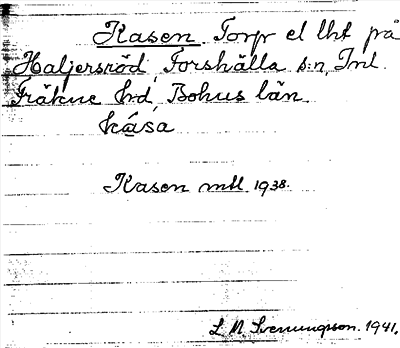 Kasen Torp el lht på
Haljersröd, Forshälla s:n, Inl.
Fräkne hrd, Bohus län.
kása
Kasen mtl 1938.
L. N. Svenungsson. 1941.